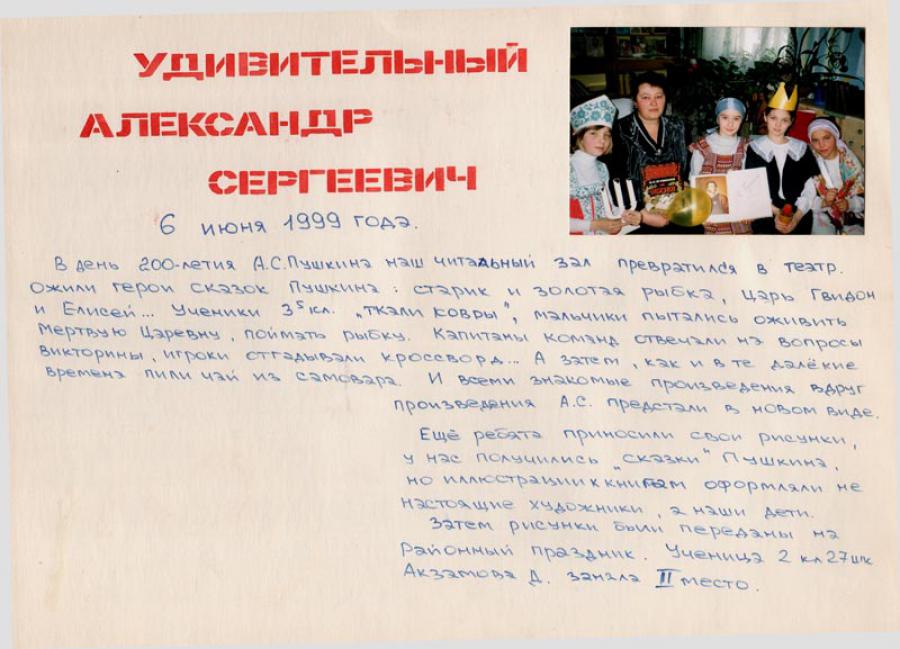 УДИВИТЕЛЬНЫЙ
АЛЕКСАНДР
СЕРГЕЕВИЧ
6 июня 1999 года.
В день 200-летия А.С.Пушкина наш читальный зал превратился в театр.
Ожили герои сказок Пушкина: старик и золотая рыбка, царь Гвидон
и Елисей... Ученики 3 кл. „ткали ковры", мальчики пытались оживить
мертвую царевну, поймать рыбку. Капитаны команд отвечали на вопросы
викторины, игроки отгадывали кроссворд... А затем, как и в те далёкие
времена пили чай из самовара. И всеми знакомые произведения вдруг
произведения А.С. предстали в новом виде.
Ещё ребята приносили свои рисунки,
у нас получились „сказки" Пушкина,
но иллюстрации к книгам оформляли не
настоящие художники, а наши дети.
Затем рисунки были переданы на
районный праздник. Ученица 2 кл 27 шк.
Акзамова Д. заняла II место.